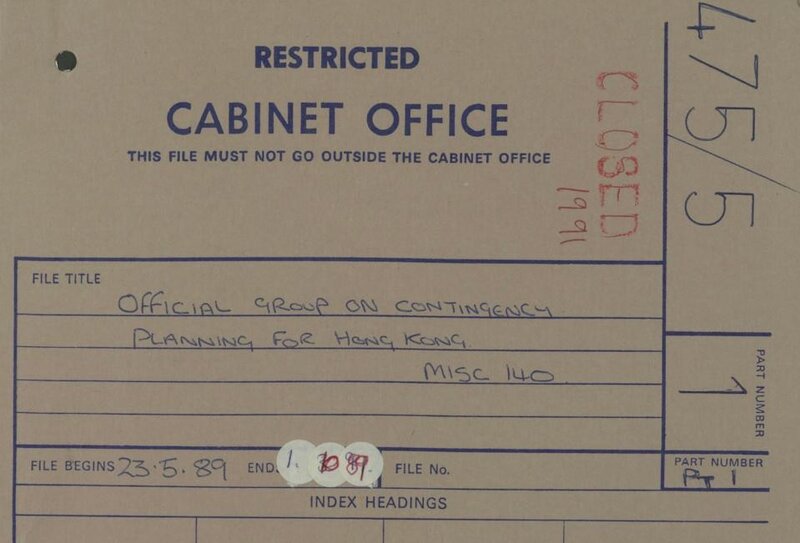 RESTRICTED
CABINET OFFICE
THIS FILE MUST NOT GO OUTSIDE THE CABINET OFFICE
CLOSED
1991
475/5
FILE TITLE
OFFICIAL GROUP ON CONTINGENCY
PLANNING FOR HONG KONG.
MISC 140
PART NUMBER
1
FILE BEGINS 23.5.89 END. 1. 10 89. FILE No.
PART NUMBER
Pt 1
INDEX HEADINGS